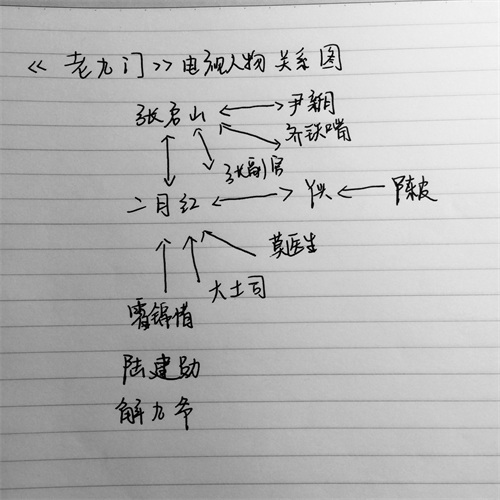 《老九门》电视人物关系图
张启山 尹新月
齐铁嘴
张副官
二月红 丫头 陈皮
莫医生
大土司
霍锦惜
陆建勋
解九爷